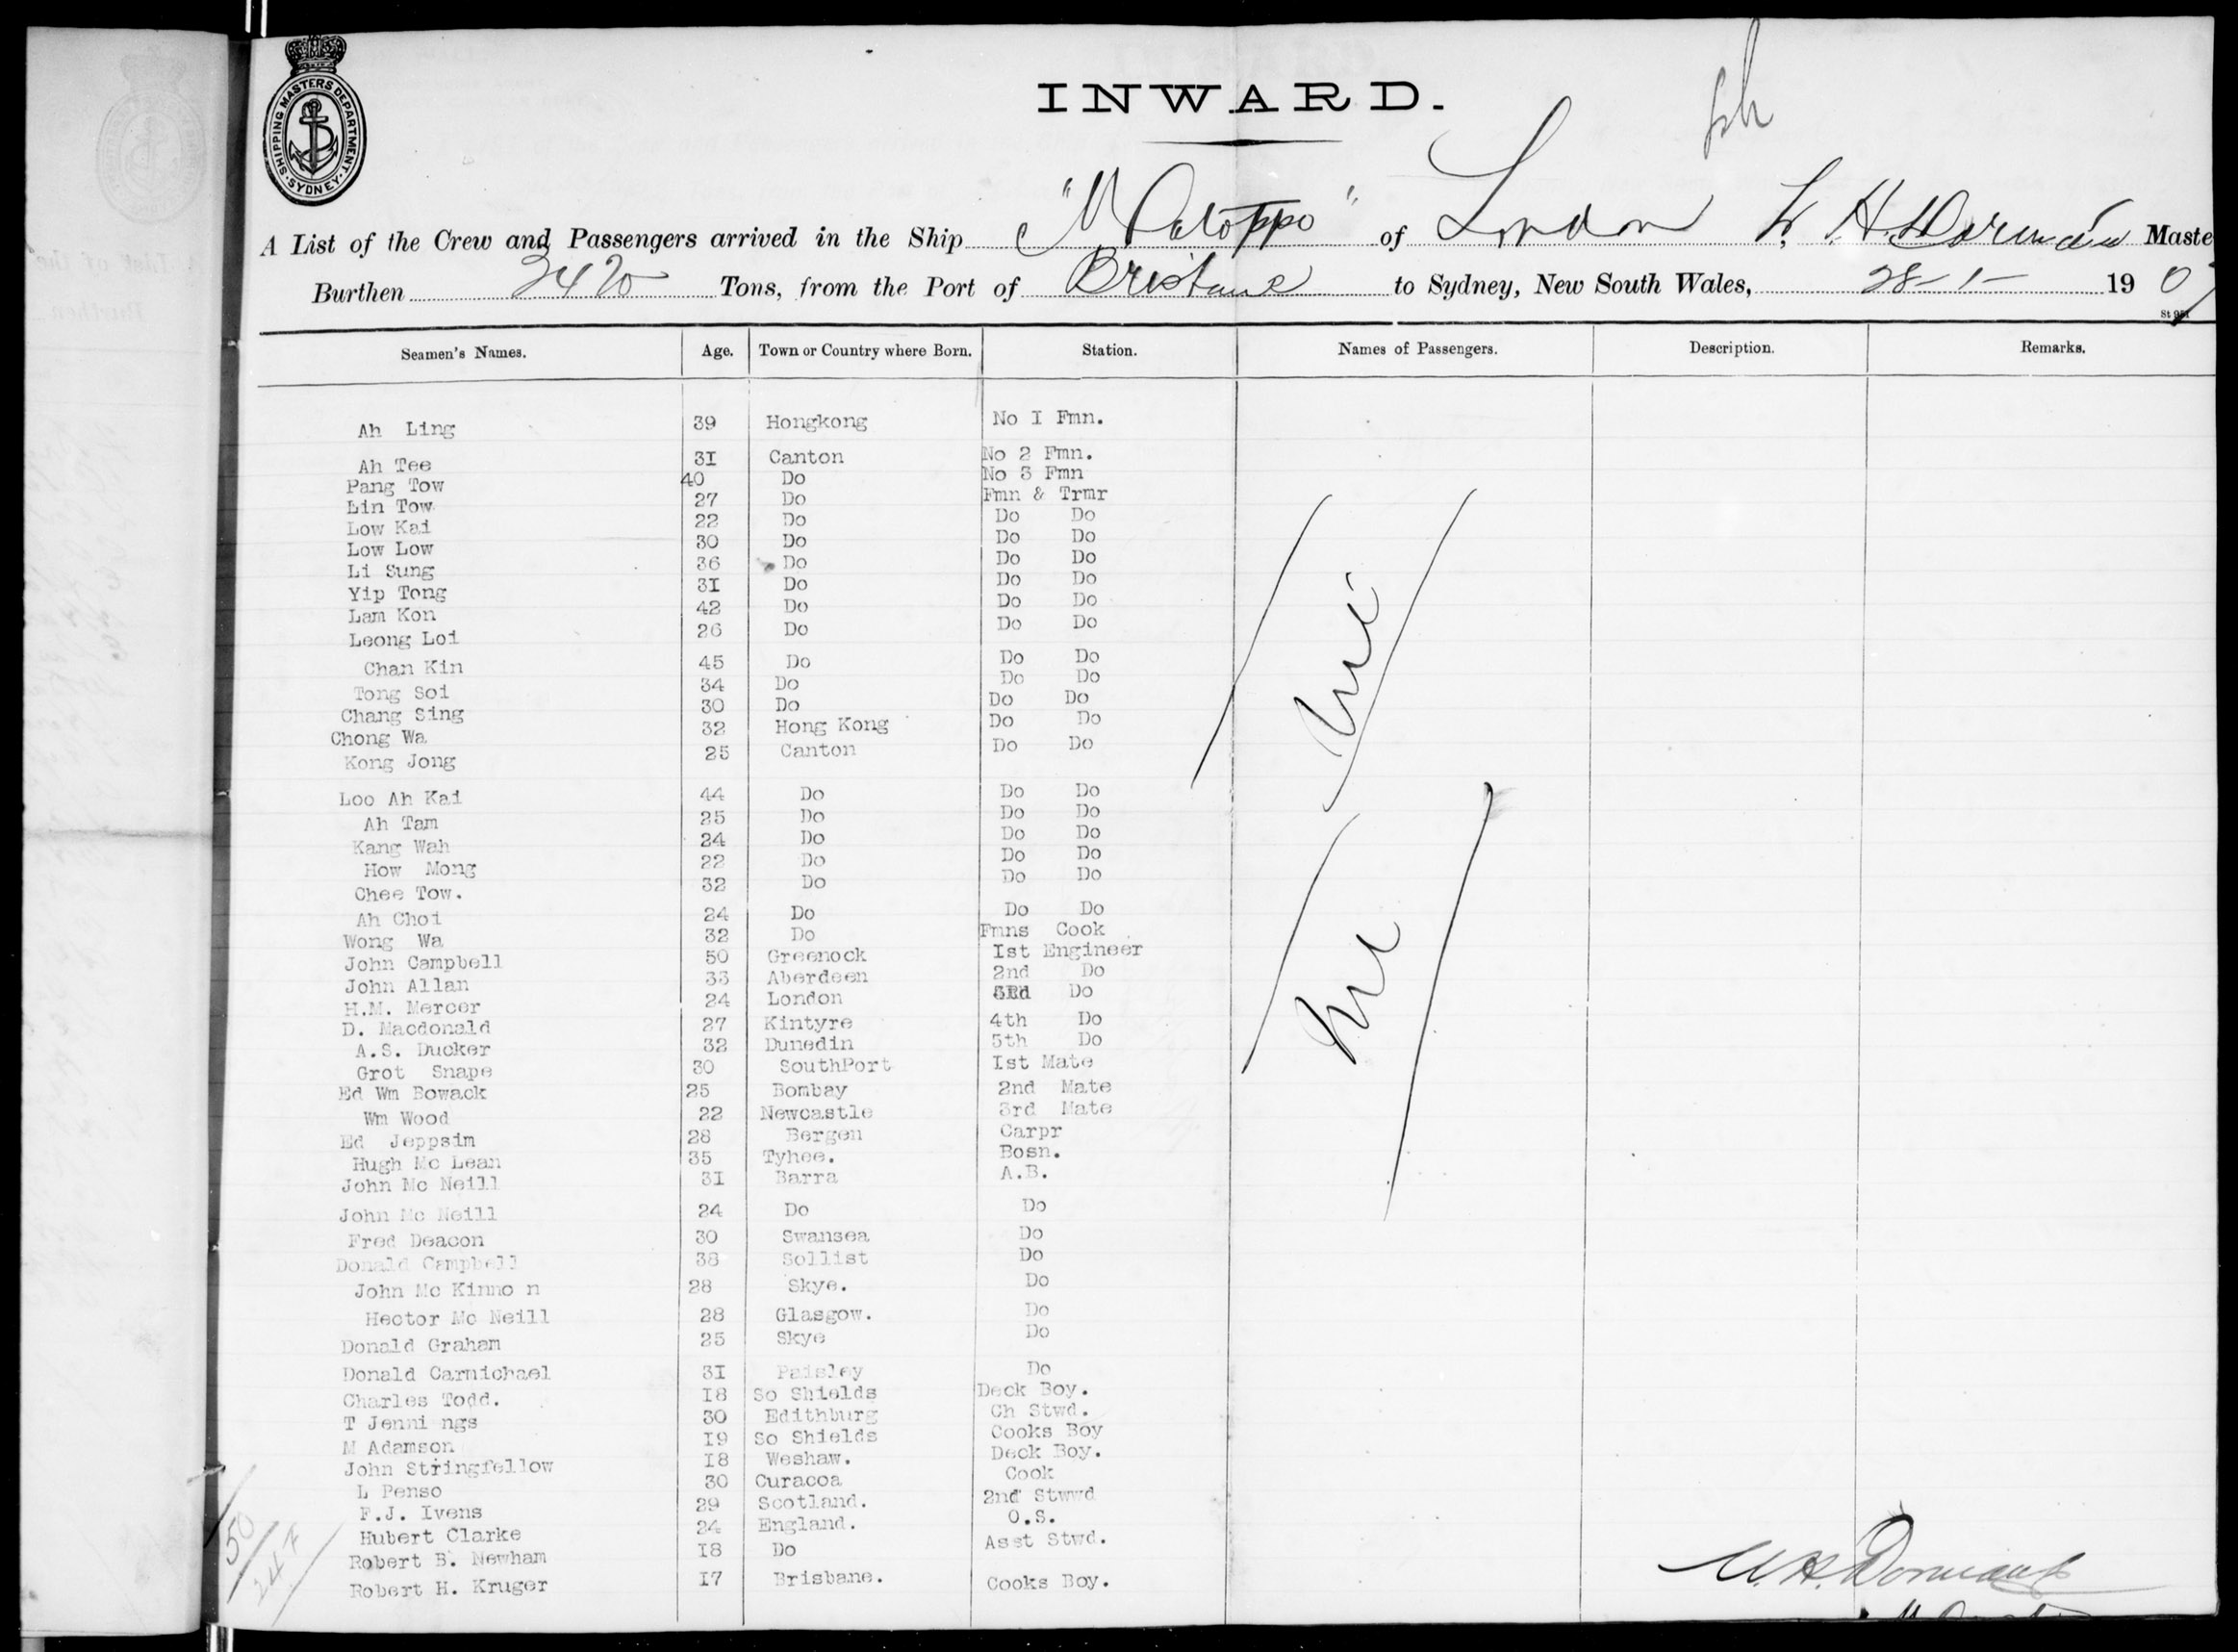 SHIPPING MASTERS DEPARTMENT. SYDNEY
INWARD.
A List of the Crew and Passengers arrived in the Ship "Matoppo" of London W. H. Dormand Maste
Burthen 3420 Tons, from the Port of Brisbane to Sydney, New South Wales, 28-1- 1907
Seamen's Names. Age. Town or Country where Born. Station. Names of Passengers. Description. Remarks.
Ah Ling 39 Hongkong No I Fmn.
Ah Tee 3I Canton No 2 Fmn.
Pang Tow 40 Do No 3 Fmn
Lin Tow 27 Do Fmn & Trmr
Low Kai 22 Do Do Do
Low Low 30 Do Do Do
Li Sung 36 Do Do Do
Yip Tong 3I Do Do Do
Lam Kon 42 Do Do Do
Leong Loi 26 Do Do Do
Chan Kin 45 Do Do Do
Tong Soi 34 Do Do Do
Chang Sing 30 Do Do Do
Chong Wa 32 Hong Kong Do Do
Kong Jong 25 Canton Do Do
Loo Ah Kai 44 Do Do Do
Ah Tam 25 Do Do Do
Kang Wah 24 Do Do Do
How Mong 22 Do Do Do
Chee Tow. 32 Do Do Do
Ah Choi 24 Do Do Do
Wong Wa 32 Do Fmns Cook
John Campbell 50 Greenock Ist Engineer
John Allan 33 Aberdeen 2nd Do
H.M. Mercer 24 London 3Rd Do
D. Macdonald 27 Kintyre 4th Do
A.S. Ducker 32 Dunedin 5th Do
Grot Snape 30 SouthPort Ist Mate
Ed Wm Bowack 25 Bombay 2nd Mate
Wm Wood 22 Newcastle 3rd Mate
Ed Jeppsim 28 Bergen Carpr
Hugh Mc Lean 35 Tyhee. Bosn.
John Mc Neill 3I Barra A.B.
John Mc Neill 24 Do Do
Fred Deacon 30 Swansea Do
Donald Campbell 38 Sollist Do
John Mc Kinno n 28 Skye. Do
Hector Mc Neill 28 Glasgow. Do
Donald Graham 25 Skye Do
Donald Carmichael 3I Paisley Do
Charles Todd. I8 So Shields Deck Boy.
T Jenni ngs 30 Edithburg Ch Stwd.
M Adamson I9 So Shields Cooks Boy
John Stringfellow I8 Weshaw. Deck Boy.
L Penso 30 Curacoa Cook
F.J. Ivens 29 Scotland. 2nd Stwwd
Hubert Clarke 24 England. O.S.
Robert B. Newham I8 Do Asst Stwd.
Robert H. Kruger I7 Brisbane. Cooks Boy.
50
W.H. Dormand